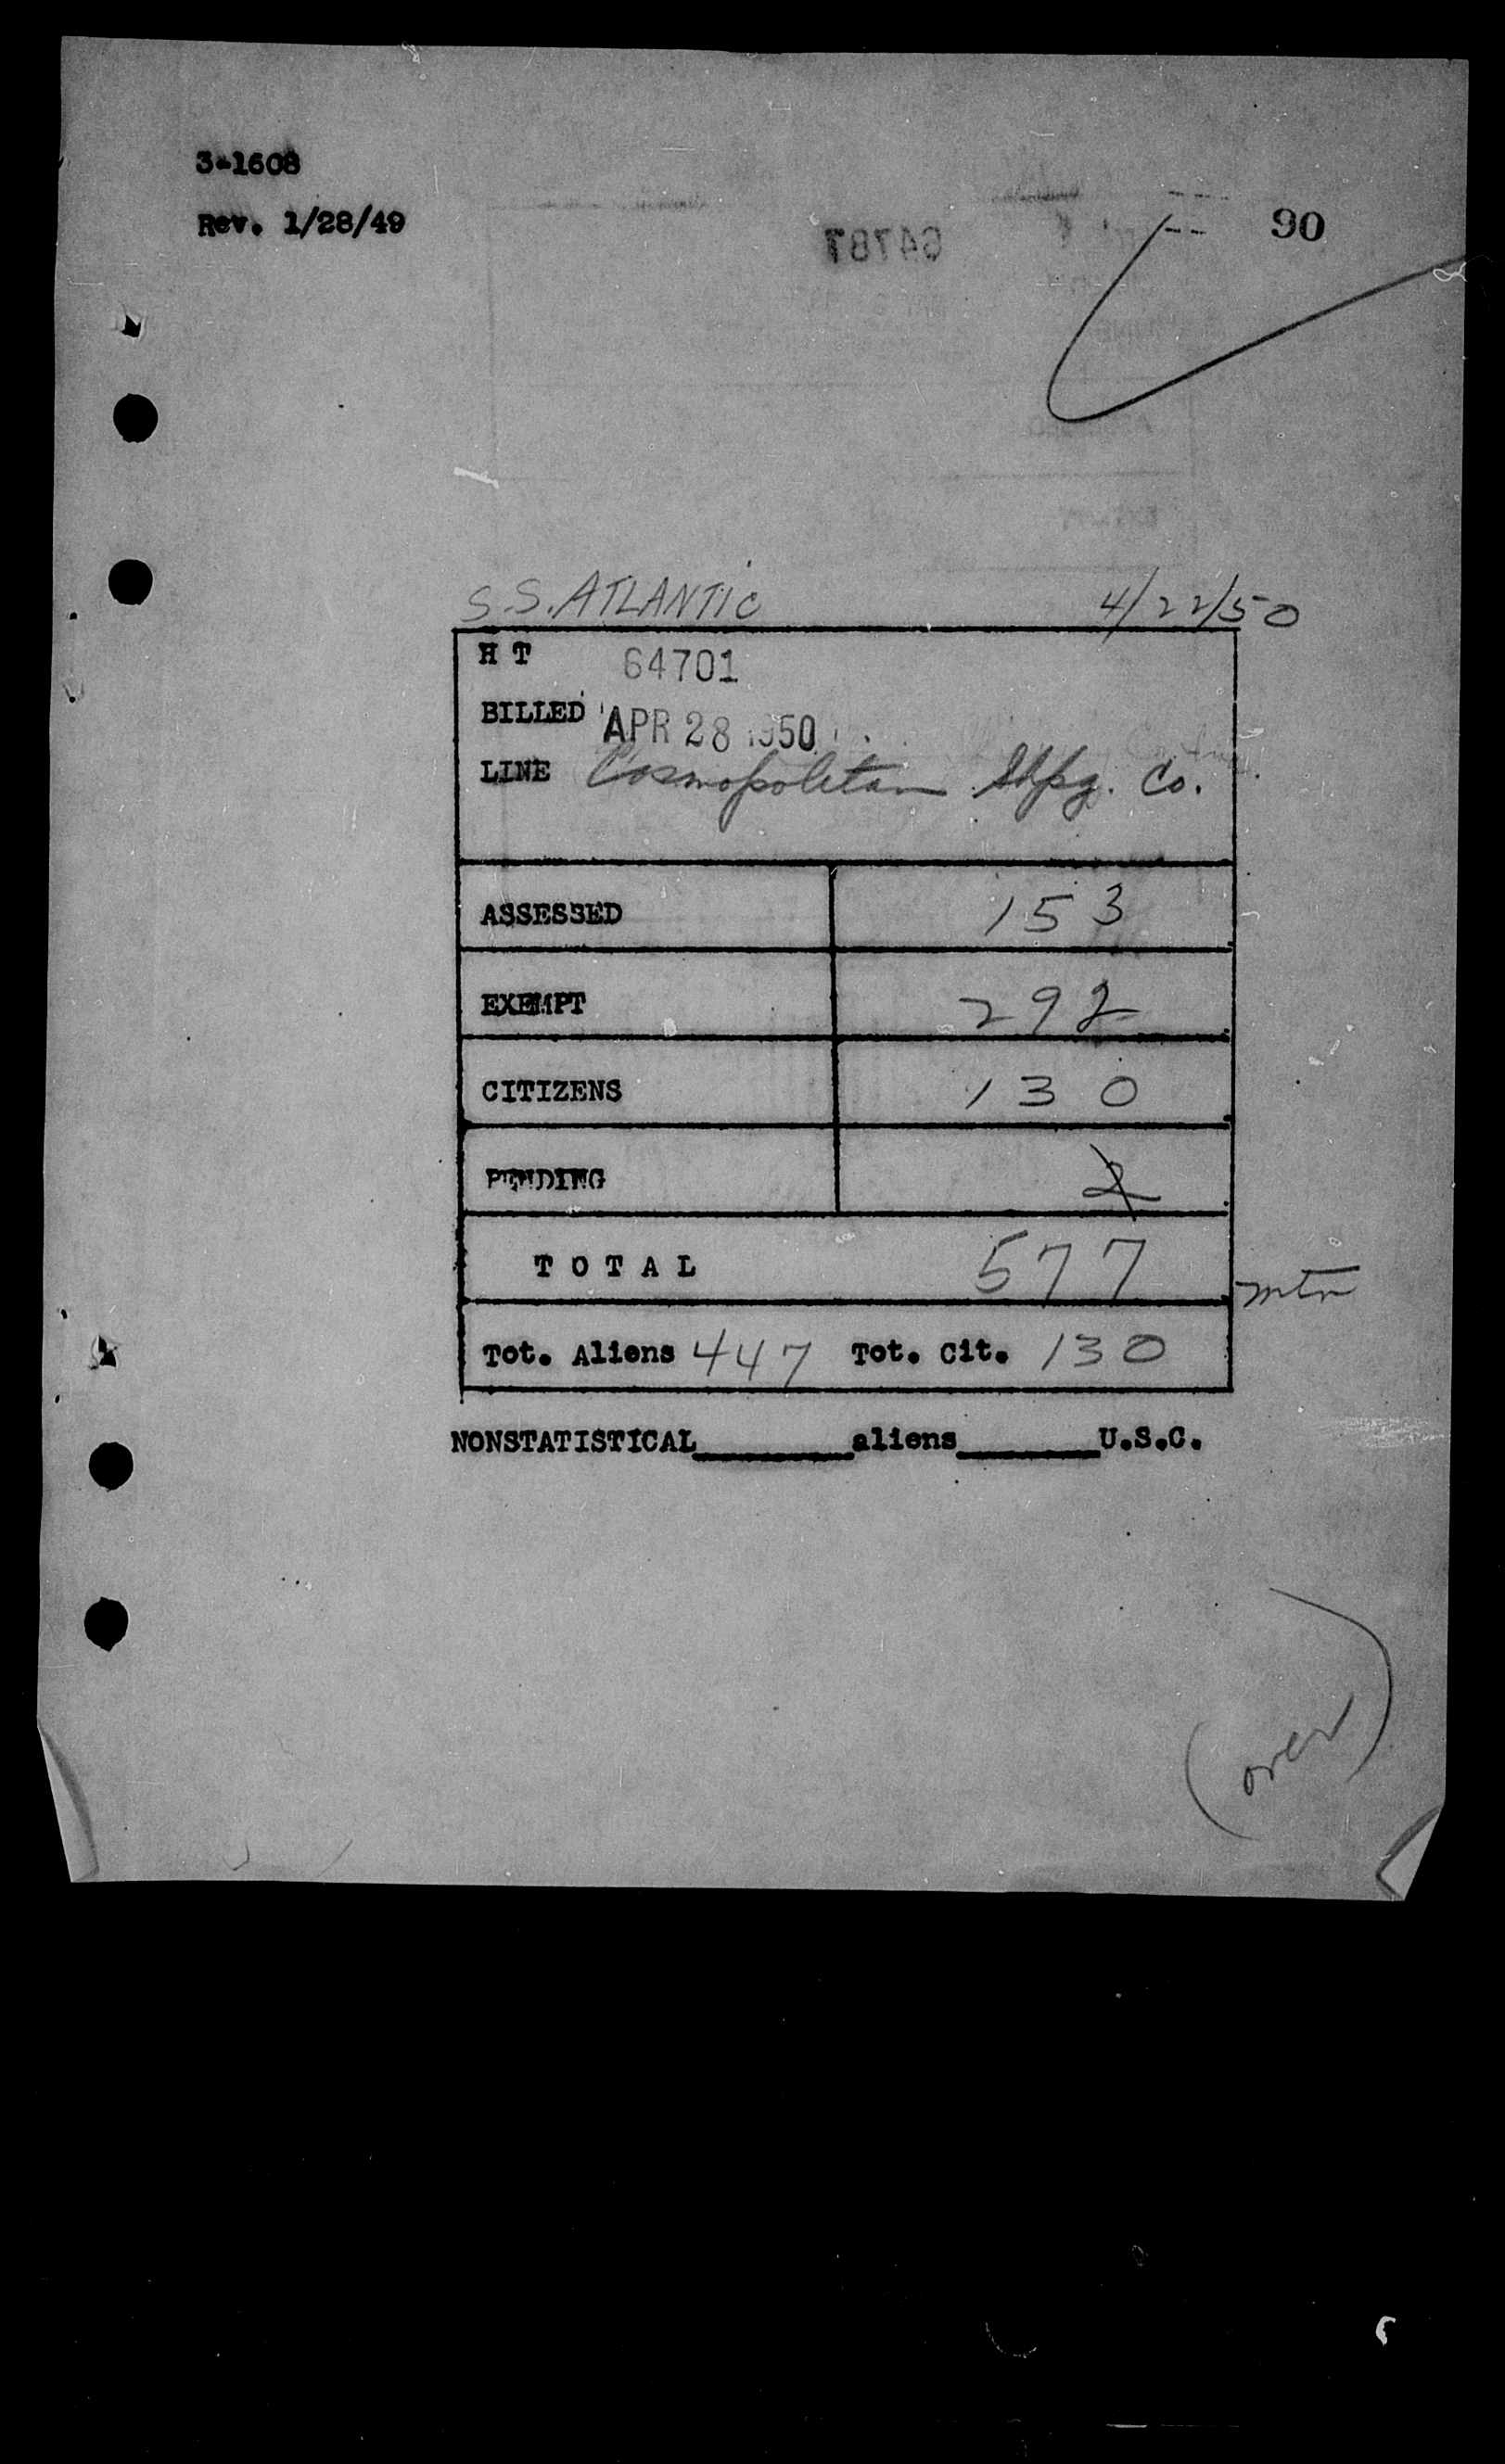 3-1608
Rev. 1/28/49
90
64787
S.S. ATLANTIC 4/22/50
H T 64701
BILLED APR 28 1950
LINE Cosmopolitan Shpg. Co.
ASSESSED 153
EXEMPT 292
CITIZENS 130
PENDING 2
TOTAL 577
mtn
Tot. Aliens 447 Tot. Cit. 130
NONSTATISTICAL aliens U.S.C.
(over)